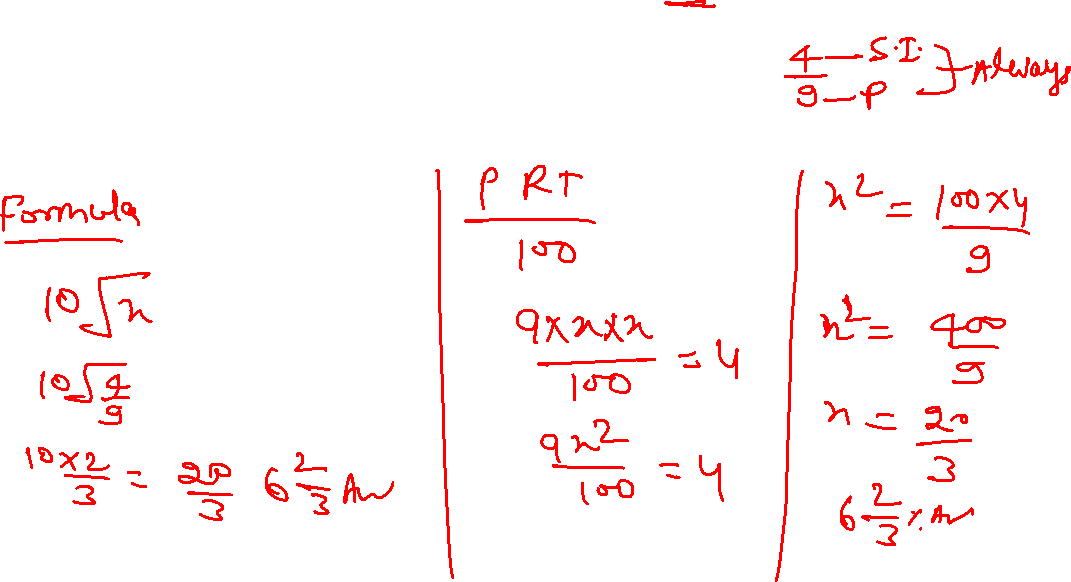 4 — S.I.
9 — P } Always
Formula
10√x
10√4/9
10×2/3 = 20/3 6 2/3 An
P R T
100
9×x×x/100 = 4
9x²/100 = 4
x² = 100×4/9
x² = 400/9
x = 20/3
6 2/3 %. An